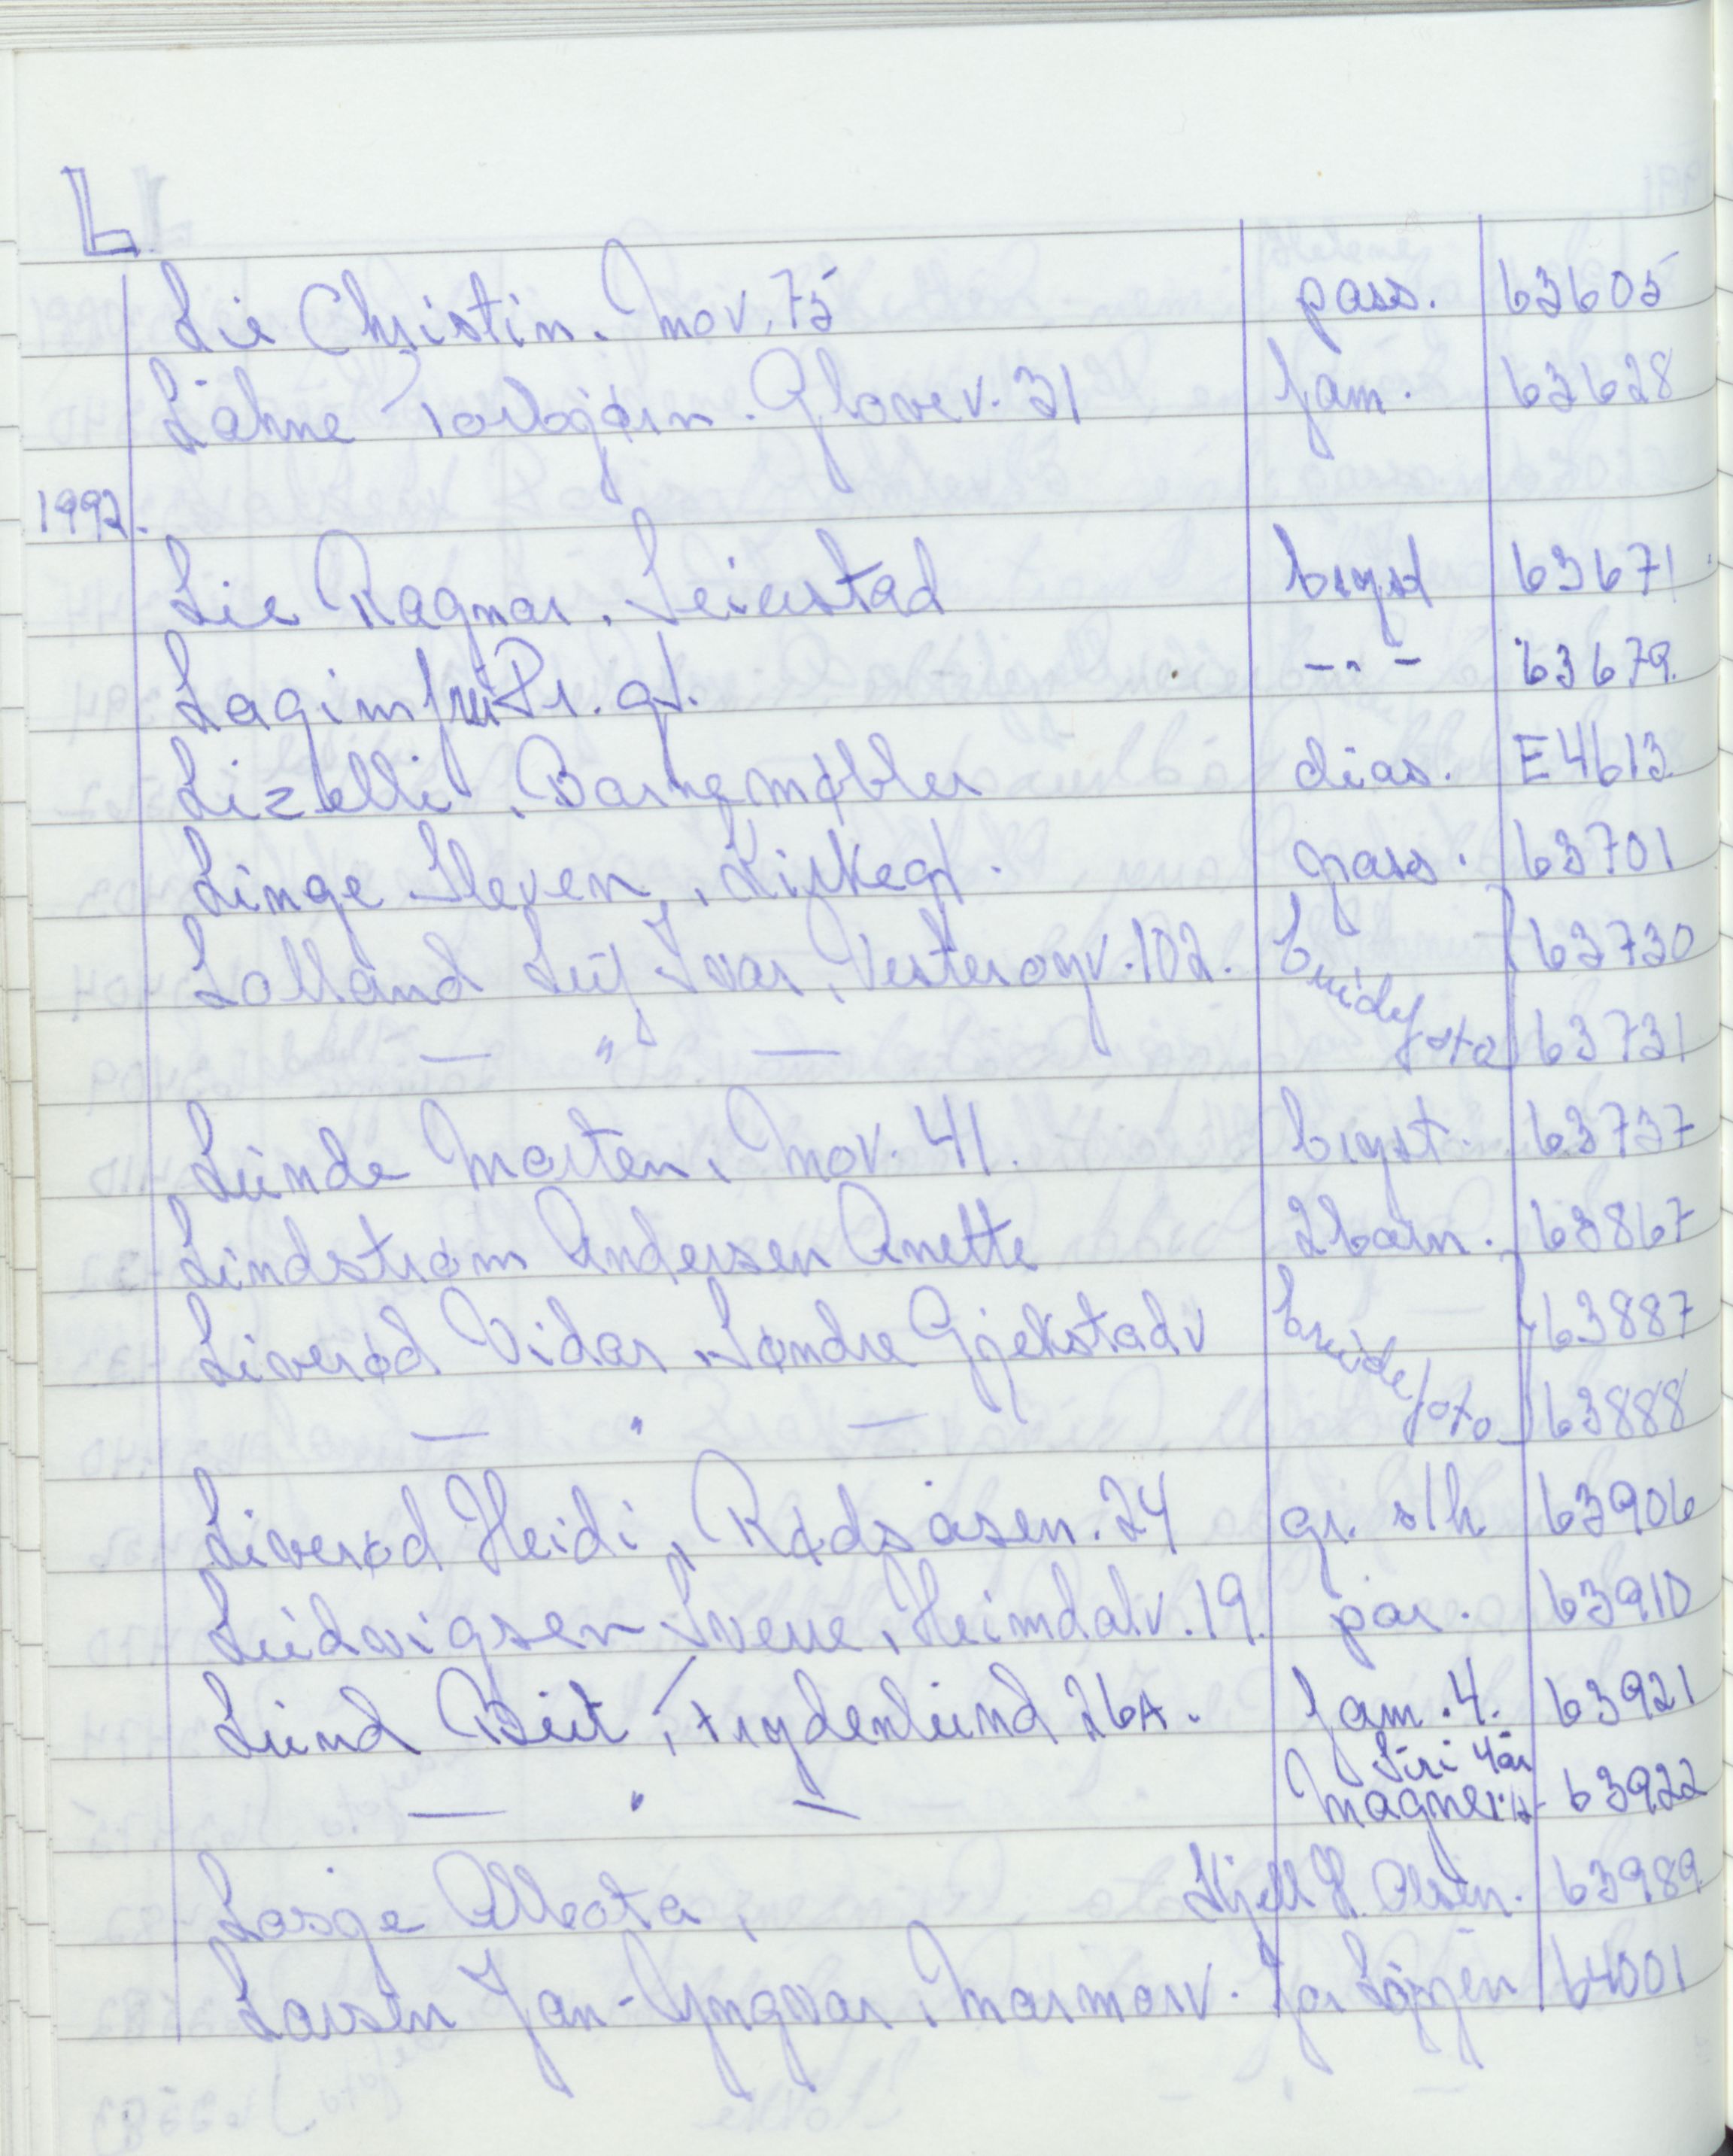 L
Lie Christin. Mov. 75 pass. 63605
Låhne Torbjørn. Glovev. 31 fam. 63628
1992.
Lie Ragnar. Leiestad bryst 63671
Pr. gt. -"- 63679
Lizelli, Barnemøbler dias. E4613
Linge Steven, Kirkegt. pass. 63701
Lolland Leif Ivar, Vesterøyv. 102. brudefoto 63730
— " — 63731
Lunde Morten, Mov. 41. bryst. 63737
Lindstrøm Andersen Anette 2barn. 63867
Liverød Vidar, Søndre Gjekstadv brudefoto 63887
— " — 63888
Liverød Heidi, Rødsåsen. 24 gr. s/h 63906
Ludvigsen Sverre, Heimdalv. 19. par. 63910
Lund Berit, Frydenlund 26A. fam. 4. 63921
Siri 4år
— " — Magne 63922
Losje Alleota, Kjell H. Olsen. 63989
Larsen Jan-Yngvar, Marmorv. 64001